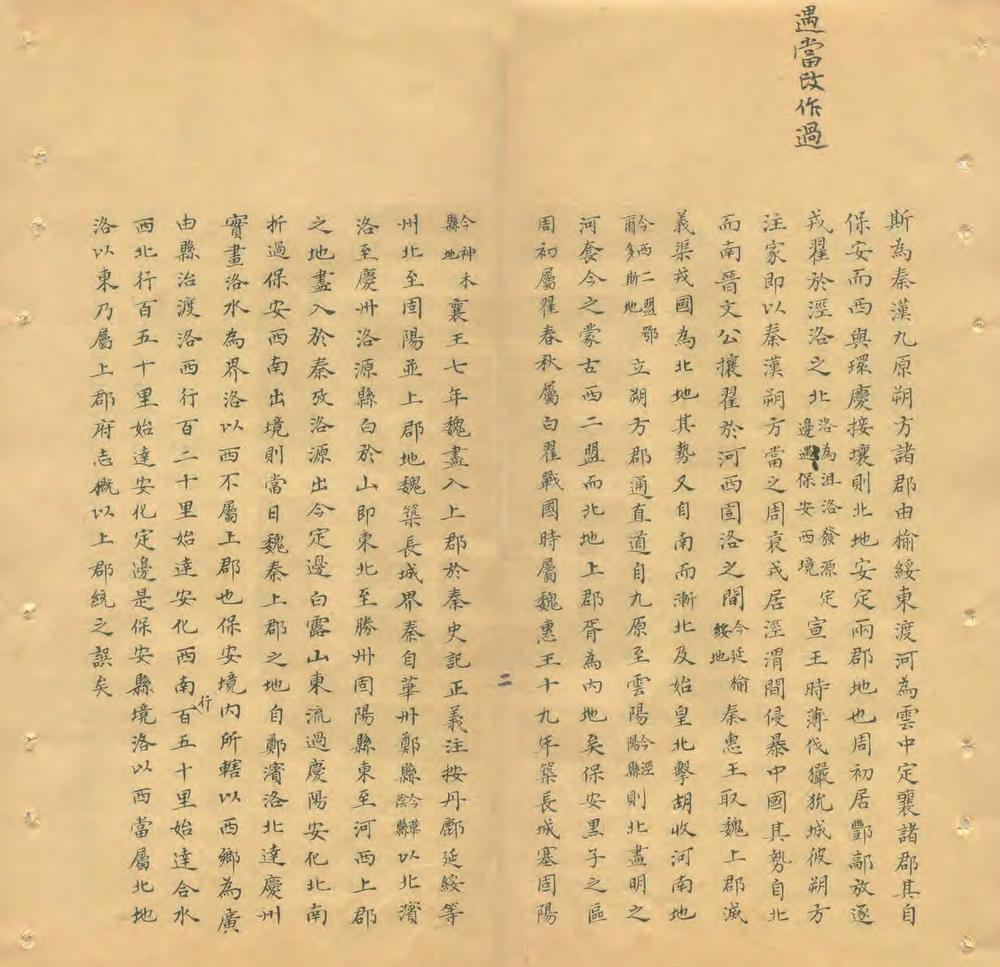 遇當改作過
斯為秦漢九原朔方諸郡由榆綏東渡河為雲中定襄諸郡其自
保安而西與環慶接壤則北地安定兩郡地也周初居酆鄗放逐
戎翟於涇洛之北洛為沮洛發源定邊遇保安西境宣王時薄伐玁狁城彼朔方
注家即以秦漢朔方當之周衰戎居涇渭間侵暴中國其勢自北
而南晉文公攘翟於河西圁洛之間今延榆綏地秦惠王取魏上郡滅
義渠戎國為北地其勢又自南而漸北及始皇北擊胡收河南地
今西二盟鄂爾多斯地立朔方郡通直道自九原至雲陽今涇陽縣則北盡明之
河套今之蒙古西二盟而北地上郡胥為內地矣保安黑子之區
周初屬翟春秋屬白翟戰國時屬魏惠王十九年築長城塞固陽
二
今神木縣地襄王七年魏盡入上郡於秦史記正義注按丹鄜延綏等
州北至固陽並上郡地魏築長城界秦自華州鄭縣今華陰縣以北濱
洛至慶州洛源縣白於山即東北至勝州固陽縣東至河西上郡
之地盡入於秦攷洛源出今定邊白露山東流過慶陽安化北南
折過保安西南出境則當日魏秦上郡之地自鄭濱洛北達慶州
實畫洛水為界洛以西不屬上郡也保安境內所轄以西鄉為廣
由縣治渡洛西行百二十里始達安化西南行百五十里始達合水
西北行百五十里始達安化定邊是保安縣境洛以西當屬北地
洛以東乃屬上郡府志概以上郡統之誤矣